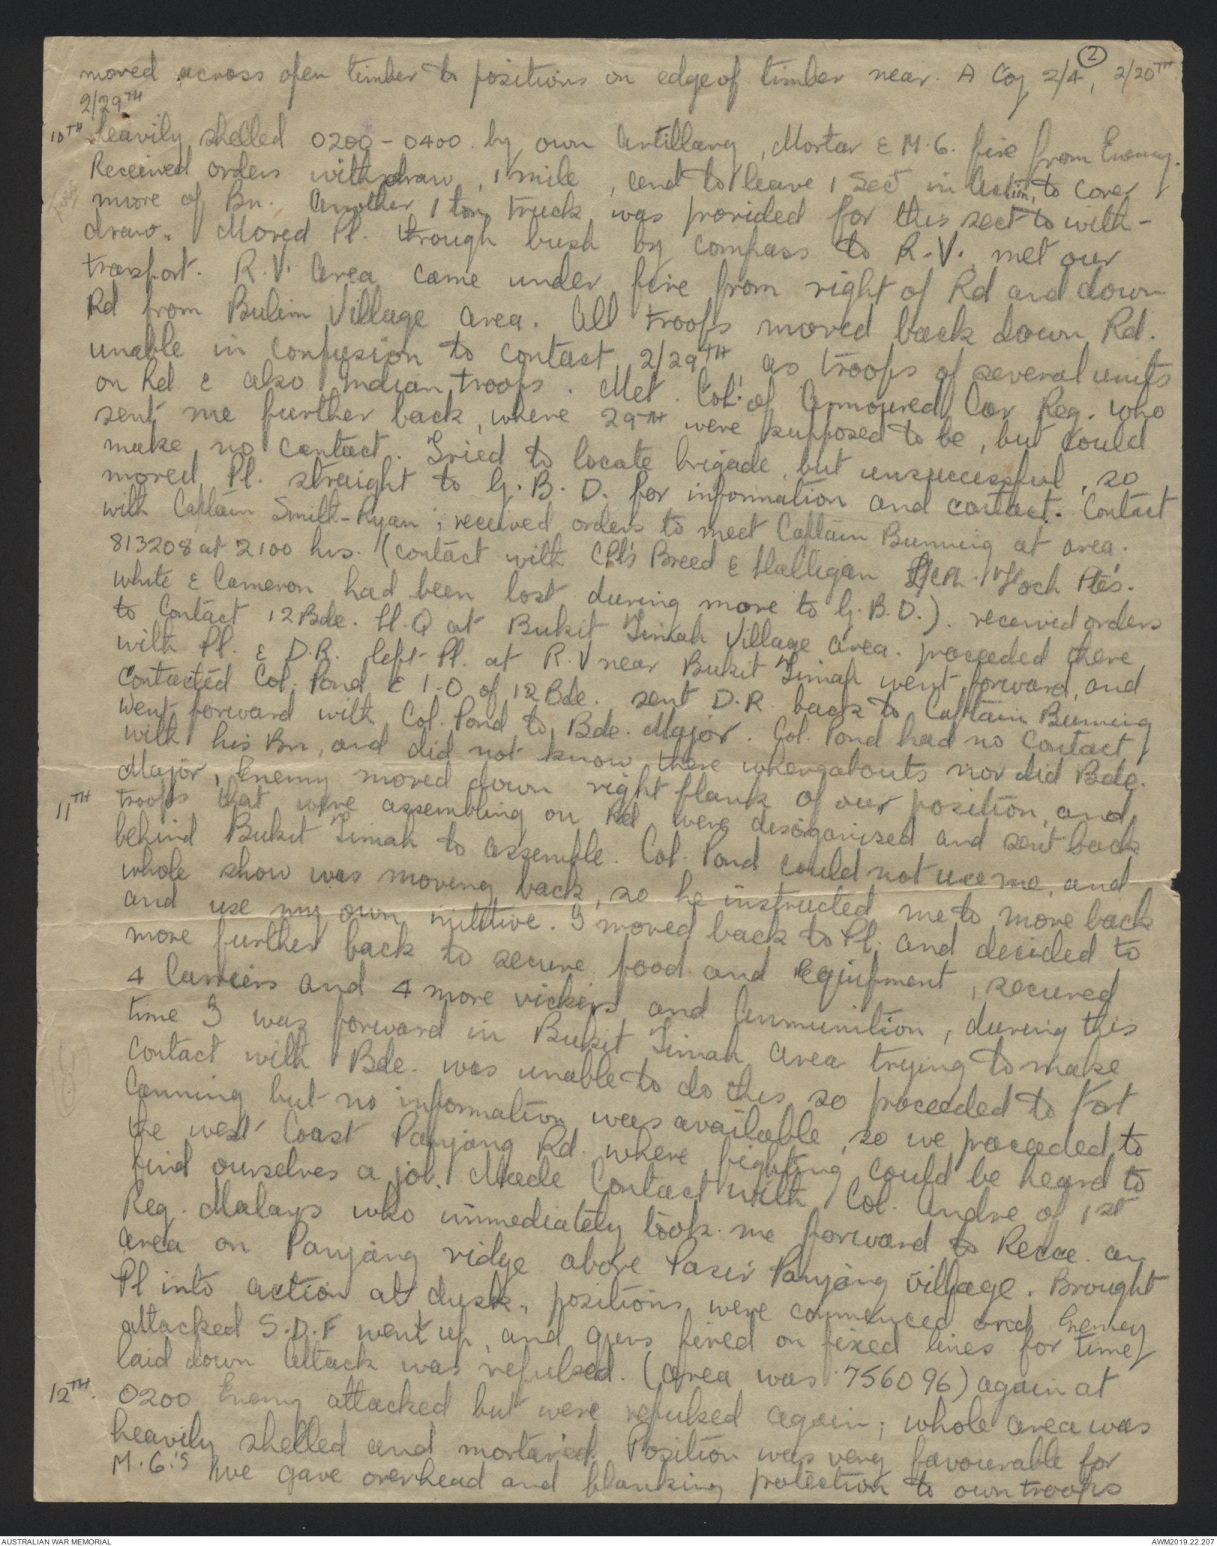 2
moved across open timber to positions on edge of timber near. A Coy 2/4, 2/20TH
2/29TH.
10TH heavily shelled 0200 - 0400 by own Artillary, Mortar & M.G. fire from Enemy.
Received orders withdraw, 1 mile, and to leave 1 Sect in Action, to cover
move of Bn. Another 1 ton truck was provided for this sect to with-
draw. Moved Pl. through bush by compass to R.V. met our
transport. R.V. area came under fire from right of Rd and down
Rd from Bulim Village area. All troops moved back down Rd.
unable in confusion to contact 2/29TH as troops of several units
on Rd & also Indian troops. Met Col. of Armoured Car Reg. who
sent me further back, where 29TH were supposed to be, but could
make no contact. Tried to locate brigade but unsuccessful, so
moved Pl. straight to G.B.D. for information and contact. Contact
with Captain Smith-Ryan; received orders to meet Captain Bunning at area.
813208 at 2100 hrs. (contact with CPL's Breed & Halligan Hoch Pte's.
White & Cameron had been lost during move to G.B.D.). received orders
to contact 12 Bde. H.Q at Bukit Timah Village area. proceeded there
with Pl. & D.R. left Pl. at R.V near Bukit Timah went forward, and
contacted Col. Pond & I.O of 12 Bde. sent D.R. back to Captain Bunning
went forward with Col. Pond to Bde. Major. Col. Pond had no contact
with his Bn, and did not know there whereabouts nor did Bde.
Major, Enemy moved down right flank of our position, and
11TH troops that were assembling on Rd were disorganised and sent back
behind Bukit Timah to assemble. Col. Pond could not use me, and
whole show was moving back, so he instructed me to move back
and use my own inititive. I moved back to Pl. and decided to
move further back to secure food and equipment, secured
4 Carriers and 4 more vickers and Ammunition, during this
time I was forward in Bukit Timah area trying to make
contact with Bde. was unable to do this so proceeded to Fort
Canning but no information was available, so we proceeded to
the west Coast Panjang Rd. where fighting could be heard to
find ourselves a job. Made Contact with Col. Andre of 1st
Reg. Malays who immediately took me forward to Recce. an
area on Panjang ridge above Pasir Panjang village. Brought
Pl into action at dusk, positions were commenced and Enemy
attacked S.D.F went up, and guns fired on fixed lines for time
laid down attack was repulsed. (area was 756096) again at
12TH. 0200 Enemy attacked but were repulsed again; whole area was
heavily shelled and mortared. Position was very favourable for
M.G.'s We gave overhead and flanking protection to own troops
AUSTRALIAN WAR MEMORIAL
AWM2019.22.207